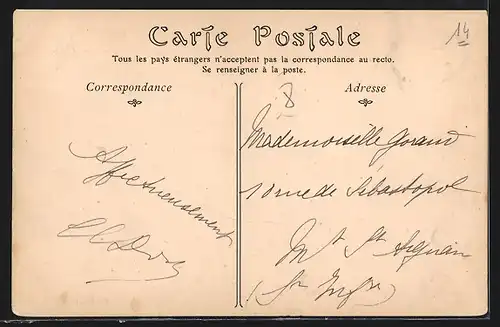 Carte Postale
14
Tous les pays étrangers n'acceptent pas la correspondance au recto.
Se renseigner à la poste.
Correspondance
Affectueusement
Adresse
Mademoiselle
10 rue de Sebastopol
Mt St Aignan
(Sne Infre)